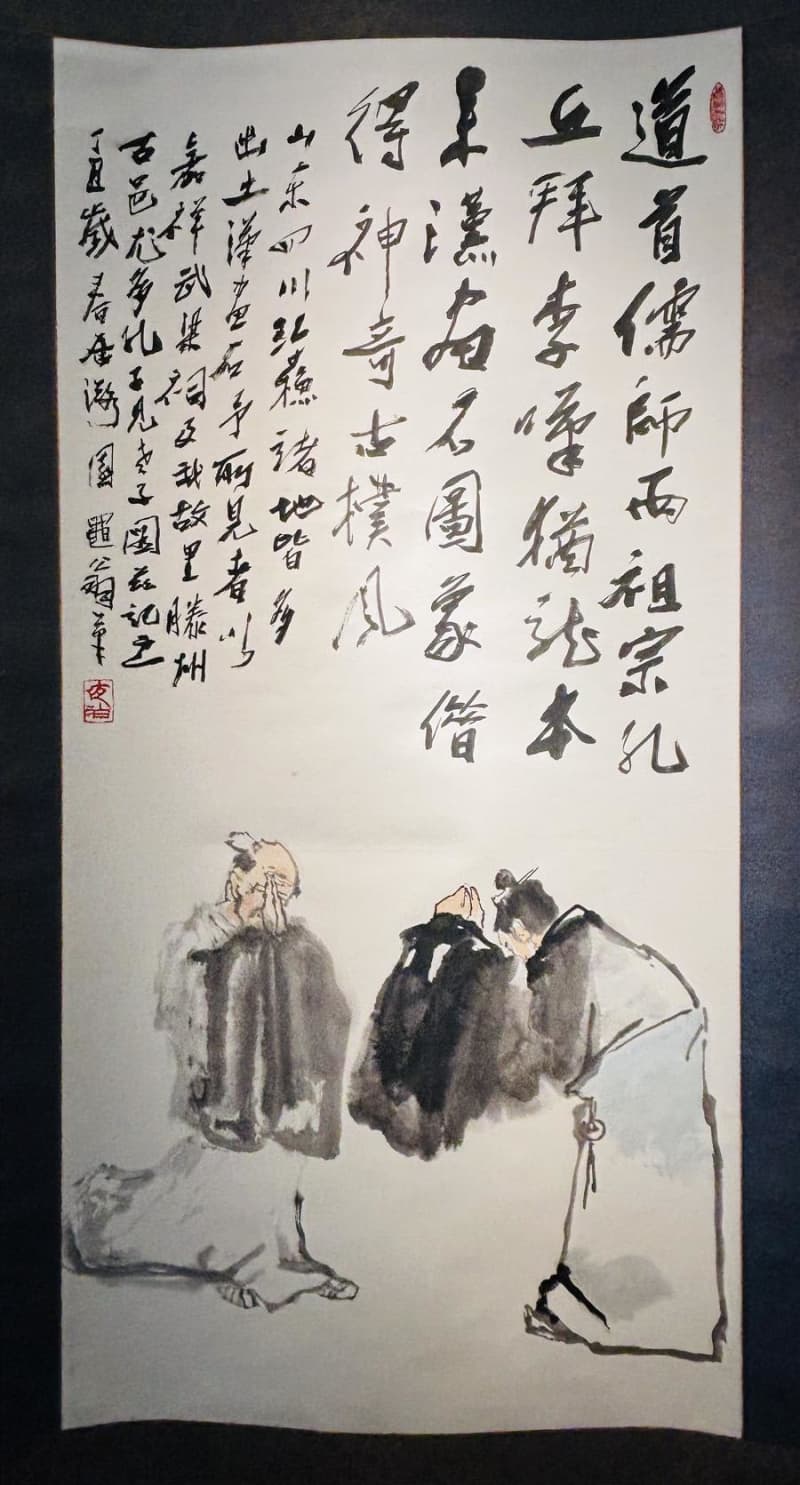 道首儒師两祖宗孔
丘拜李嘆猶龍本
来漢畫石圖象借
得神奇古樸風
山东四川江蘇諸地皆多
出土漢畫石予所見者以
嘉祥武梁祠及我故里滕州
古邑尤多孔子見老子圖茲記之
丁丑歲春居園黽翁
夜泊